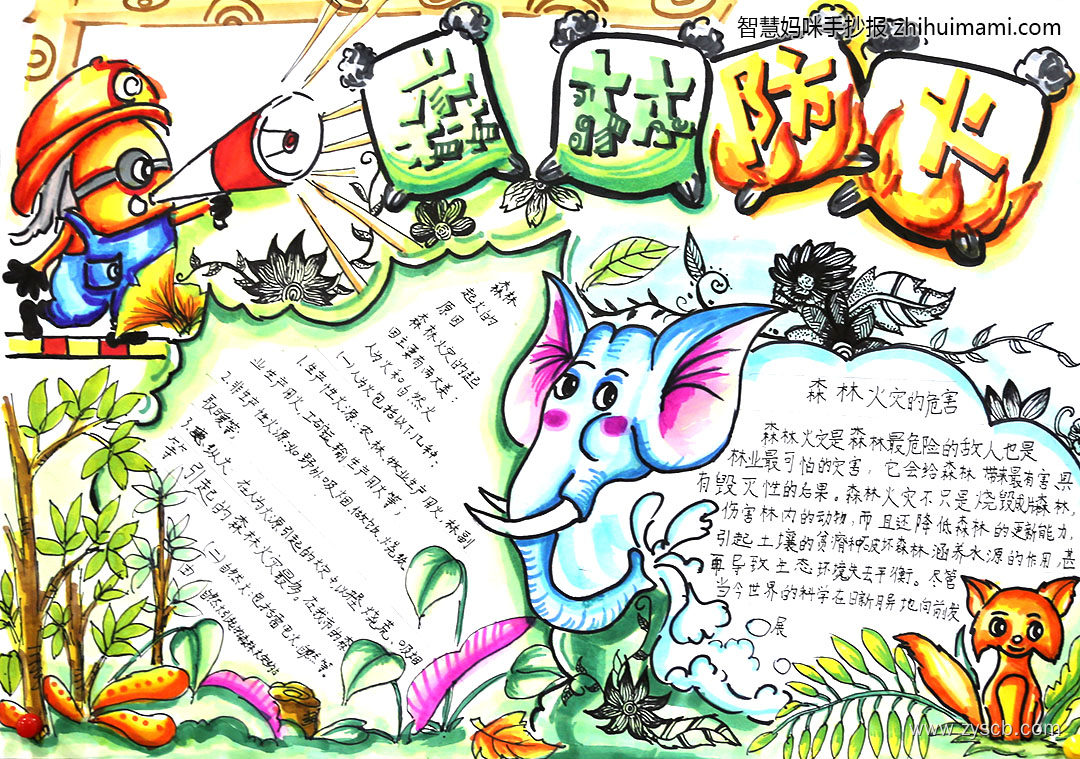 智慧妈咪手抄报 zhihuimami.com
森林防火
森林
起火的
原因
森林火灾的起
因主要有两大类:
人为火和自然火
(一)人为火包括以下几种:
1.生产性火源:农、林、牧业生产用火,林副
业生产用火,工矿运输生产用火等;
2.非生产性火源:如野外吸烟,做饭,烧纸,
取暖等;
3.故意纵火
在人为火源引起的火灾中,以开垦烧荒、吸烟
等引起的森林火灾最多,在我市的森
(二)自然火:包括雷电火、自燃等。由
森林火灾的危害
森林火灾是森林最危险的敌人也是
林业最可怕的灾害,它会给森林带来最有害,具
有毁灭性的后果。森林火灾不只是烧毁成片森林,
伤害林内的动物,而且还降低森林的更新能力,
引起土壤的贫瘠和破坏森林涵养水源的作用,甚
再导致生态环境失去平衡。尽管
当今世界的科学在日新月异地向前发
展
www.zyscb.com